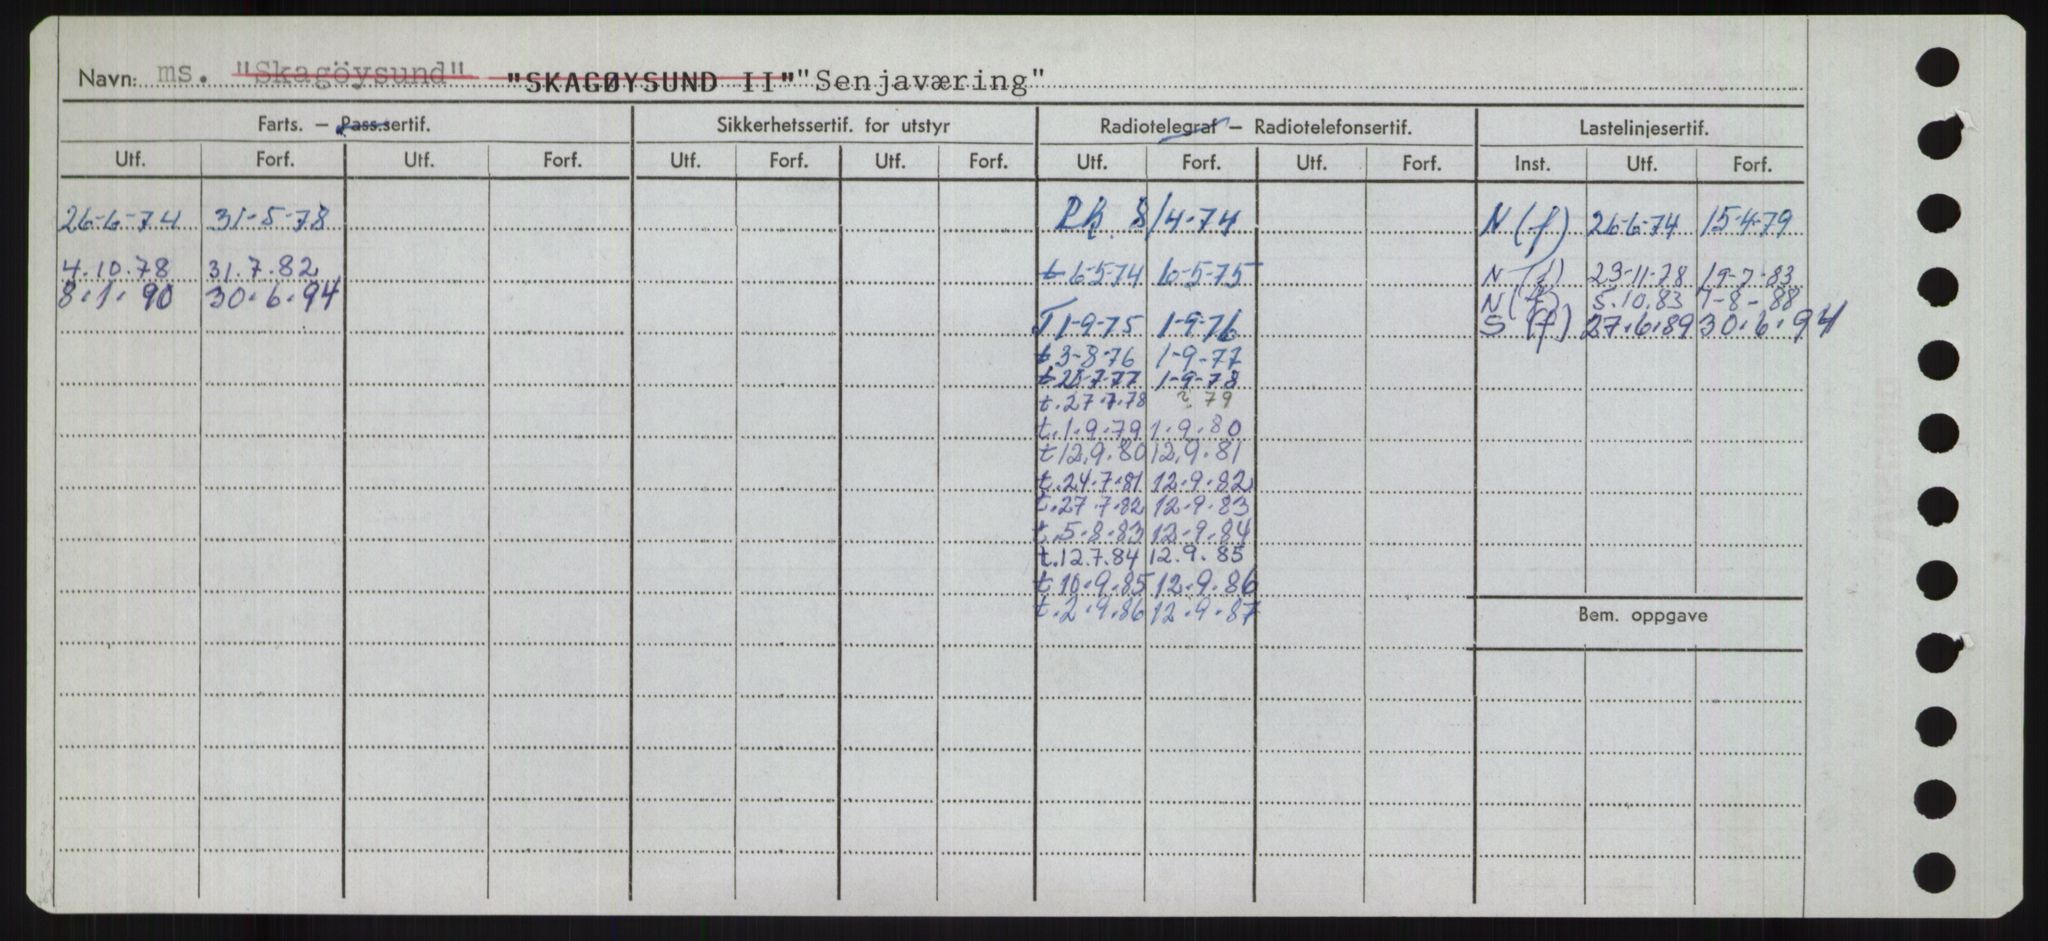 Navn: ms. "Skagöysund" "SKAGØYSUND II" "Senjaværing"
Farts. – Pass.sertif. Sikkerhetssertif. for utstyr Radiotelegraf – Radiotelefonsertif. Lastelinjesertif.
Utf. Forf. Utf. Forf. Utf. Forf. Utf. Forf. Utf. Forf. Utf. Forf. Inst. Utf. Forf.
26-6-74 31-5-78 8/4-74 N (f) 26-6-74 15-4-79
4.10.78 31.7.82 t 6-5-74 6-5-75 N (f) 23-11-78 19-7-83
8.1.90 30.6.94 N (f) 5.10.83 1-8-88
T 1-9-75 1-9-76 S (f) 27.6.89 30.6.94
t 3-8-76 1-9-77
t 28-7-77 1-9-78
t. 27.7.78 ? 79
t. 1.9.79 1.9.80
t 12.9.80 12.9.81
t. 24.7.81 12.9.82
t. 27.7.82 12.9.83
t. 5.8.83 12.9.84
t. 12.7.84 12.9.85
t. 10.9.85 12.9.86
t. 2.9.86 12.9.87
Bem. oppgave